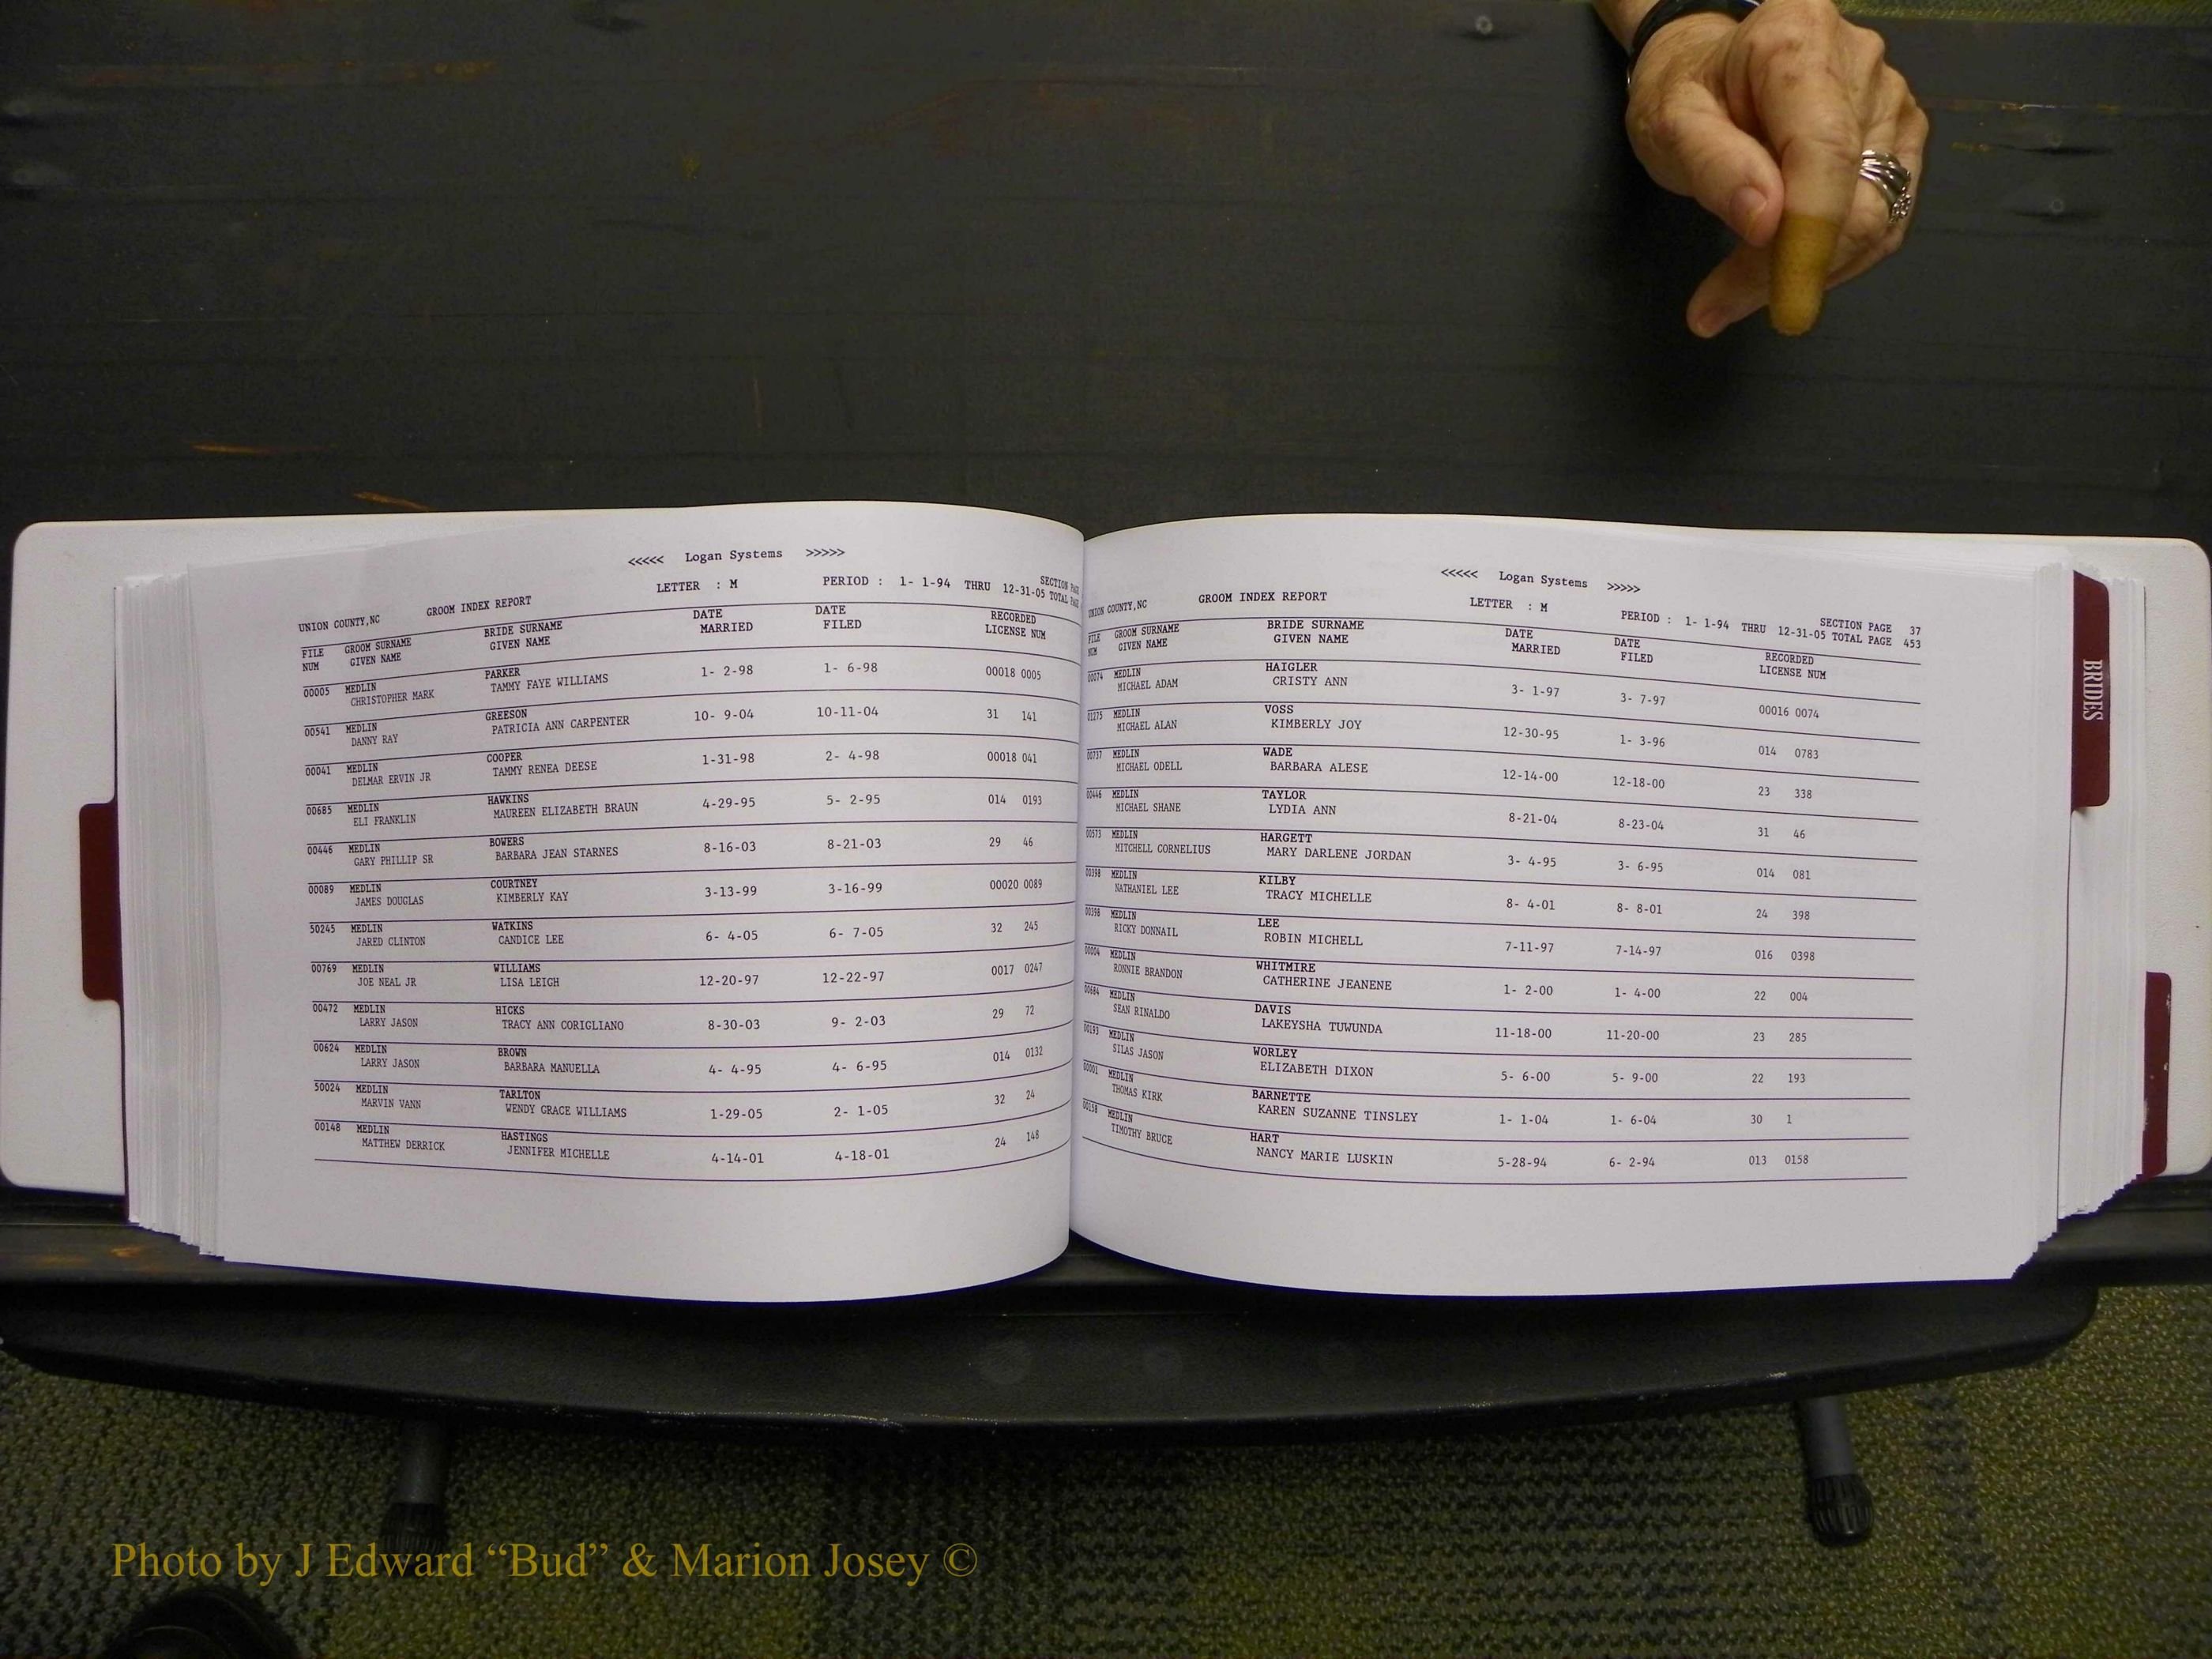 <<<<< Logan Systems >>>>>
LETTER : M PERIOD : 1- 1-94 THRU 12-31-05 SECTION PAGE
TOTAL PAGE
UNION COUNTY,NC GROOM INDEX REPORT
FILE GROOM SURNAME BRIDE SURNAME DATE DATE RECORDED
NUM GIVEN NAME GIVEN NAME MARRIED FILED LICENSE NUM
00005 MEDLIN PARKER 1- 2-98 1- 6-98 00018 0005
CHRISTOPHER MARK TAMMY FAYE WILLIAMS
00541 MEDLIN GREESON 10- 9-04 10-11-04 31 141
DANNY RAY PATRICIA ANN CARPENTER
00041 MEDLIN COOPER 1-31-98 2- 4-98 00018 041
DELMAR ERVIN JR TAMMY RENEA DEESE
00685 MEDLIN HAWKINS 4-29-95 5- 2-95 014 0193
ELI FRANKLIN MAUREEN ELIZABETH BRAUN
00446 MEDLIN BOWERS 8-16-03 8-21-03 29 46
GARY PHILLIP SR BARBARA JEAN STARNES
00089 MEDLIN COURTNEY 3-13-99 3-16-99 00020 0089
JAMES DOUGLAS KIMBERLY KAY
50245 MEDLIN WATKINS 6- 4-05 6- 7-05 32 245
JARED CLINTON CANDICE LEE
00769 MEDLIN WILLIAMS 12-20-97 12-22-97 0017 0247
JOE NEAL JR LISA LEIGH
00472 MEDLIN HICKS 8-30-03 9- 2-03 29 72
LARRY JASON TRACY ANN CORIGLIANO
00624 MEDLIN BROWN 4- 4-95 4- 6-95 014 0132
LARRY JASON BARBARA MANUELLA
50024 MEDLIN TARLTON 1-29-05 2- 1-05 32 24
MARVIN VANN WENDY GRACE WILLIAMS
00148 MEDLIN HASTINGS 4-14-01 4-18-01 24 148
MATTHEW DERRICK JENNIFER MICHELLE
<<<<< Logan Systems >>>>>
LETTER : M PERIOD : 1- 1-94 THRU 12-31-05 SECTION PAGE 37
TOTAL PAGE 453
UNION COUNTY,NC GROOM INDEX REPORT
FILE GROOM SURNAME BRIDE SURNAME DATE DATE RECORDED
NUM GIVEN NAME GIVEN NAME MARRIED FILED LICENSE NUM
00074 MEDLIN HAIGLER 3- 1-97 3- 7-97 00016 0074
MICHAEL ADAM CRISTY ANN
01275 MEDLIN VOSS 12-30-95 1- 3-96 014 0783
MICHAEL ALAN KIMBERLY JOY
00737 MEDLIN WADE 12-14-00 12-18-00 23 338
MICHAEL ODELL BARBARA ALESE
00446 MEDLIN TAYLOR 8-21-04 8-23-04 31 46
MICHAEL SHANE LYDIA ANN
00573 MEDLIN HARGETT 3- 4-95 3- 6-95 014 081
MITCHELL CORNELIUS MARY DARLENE JORDAN
00398 MEDLIN KILBY 8- 4-01 8- 8-01 24 398
NATHANIEL LEE TRACY MICHELLE
00398 MEDLIN LEE 7-11-97 7-14-97 016 0398
RICKY DONNAIL ROBIN MICHELL
00004 MEDLIN WHITMIRE 1- 2-00 1- 4-00 22 004
RONNIE BRANDON CATHERINE JEANENE
00684 MEDLIN DAVIS 11-18-00 11-20-00 23 285
SEAN RINALDO LAKEYSHA TUWUNDA
00193 MEDLIN WORLEY 5- 6-00 5- 9-00 22 193
SILAS JASON ELIZABETH DIXON
00001 MEDLIN BARNETTE 1- 1-04 1- 6-04 30 1
THOMAS KIRK KAREN SUZANNE TINSLEY
00158 MEDLIN HART 5-28-94 6- 2-94 013 0158
TIMOTHY BRUCE NANCY MARIE LUSKIN
BRIDES
Photo by J Edward “Bud” & Marion Josey ©